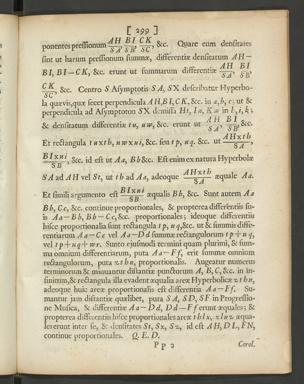 [ 299 ]
ponentes pressionum AH/SA, BI/SB, CK/SC, &c. Quare cum densitates
sint ut harum pressionum summæ, differentiæ densitatum AH—
BI, BI—CK, &c. erunt ut summarum differentiæ AH/SA, BI/SB,
CK/SC &c. Centro S Asymptotis SA, SX describatur Hyperbo-
la quævis, quæ secet perpendicula AH, BI, CK, &c. in a, b, c; ut &
perpendicula ad Asymptoton SX demissa Ht, Iu, Kw in h, i, k;
& densitatum differentiæ tu, uw, &c. erunt ut AH/SA, BI/SB &c.
Et rectangula tu×th, uw×ui, &c. seu tp, uq, &c. ut AH×th/SA,
BI×ui/SB, &c. id est ut Aa, Bb &c. Est enim ex natura Hyperbolæ
SA ad AH vel St, ut th ad Aa, adeoque AH×th/SA æquale Aa.
Et simili argumento est BI×ui/SB æqualis Bb, &c. Sunt autem Aa
Bb, Cc, &c. continue proportionales, & propterea differentiis su-
is Aa—Bb, Bb—Cc, &c. proportionales; ideoque differentiis
hisce proportionalia sunt rectangula tp, uq, &c. ut & summis diffe-
rentiarum Aa—Cc vel Aa—Dd summæ rectangulorum tp+uq,
vel tp+uq+wr. Sunto ejusmodi termini quam plurimi, & sum-
ma omnium differentiarum, puta Aa—Ff, erit summæ omnium
rectangulorum, puta zthn, proportionalis. Augeatur numerus
terminorum & minuantur distantiæ punctorum A, B, C, &c. in in-
finitum, & rectangula illa evadent æqualia areæ Hyperbolicæ zthn,
adeoque huic areæ proportionalis est differentia Aa—Ff. Su-
mantur jam distantiæ quælibet, puta SA, SD, SF in Progressio-
ne Musica, & differentiæ Aa—Dd, Dd—Ff erunt æquales; &
propterea differentiis hisce proportionales areæ thlx, xlnz æqua-
les erunt inter se, & densitates St, Sx, Sz, id est AH, DL, FN,
continue proportionales. Q. E. D.
Pp 2 Corol.